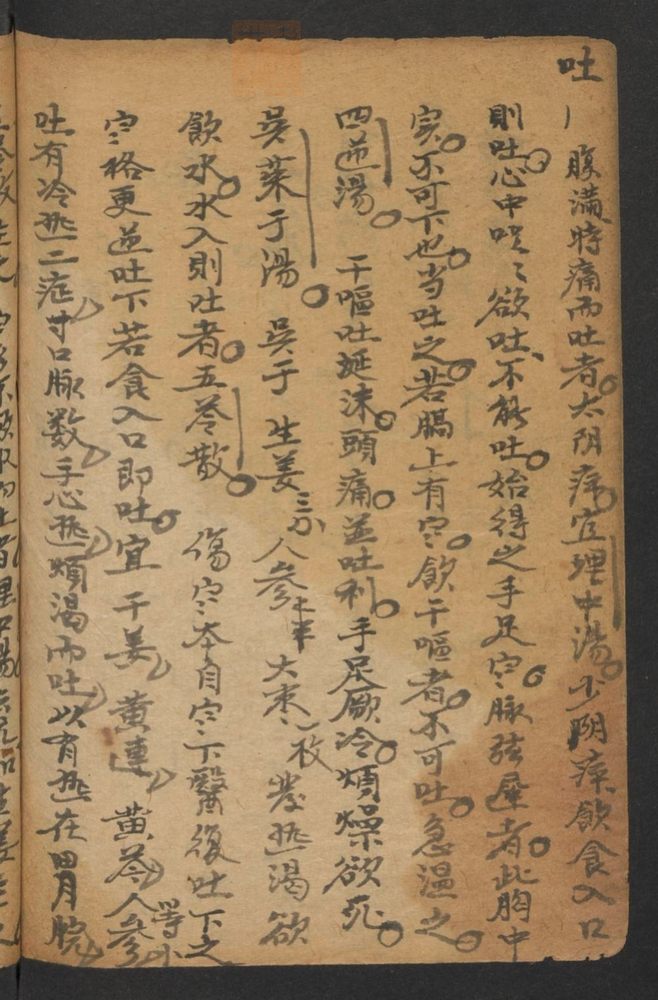 吐
丨腹满時痛而吐者太阴症宜理中湯少阴症飲食入口
則吐心中唴〻欲吐不能吐始得之手足寒脉弦遲者此胸中
实不可下也当吐之若膈上有寒飲干嘔者不可吐急温之
四逆湯 干嘔吐涎沫頭痛並吐利手足厥冷煩燥欲死
吳茱于湯 吳于 生姜三分 人參 大枣 枚 發热渴欲
飲水水入則吐者五苓散 傷寒本自寒下醫復吐下之
寒格更逆吐下若食入口即吐宜干姜 黄連 黄芩人參等分
吐有冷热二症寸口脉数手心热煩渴而吐以有热在胃脘